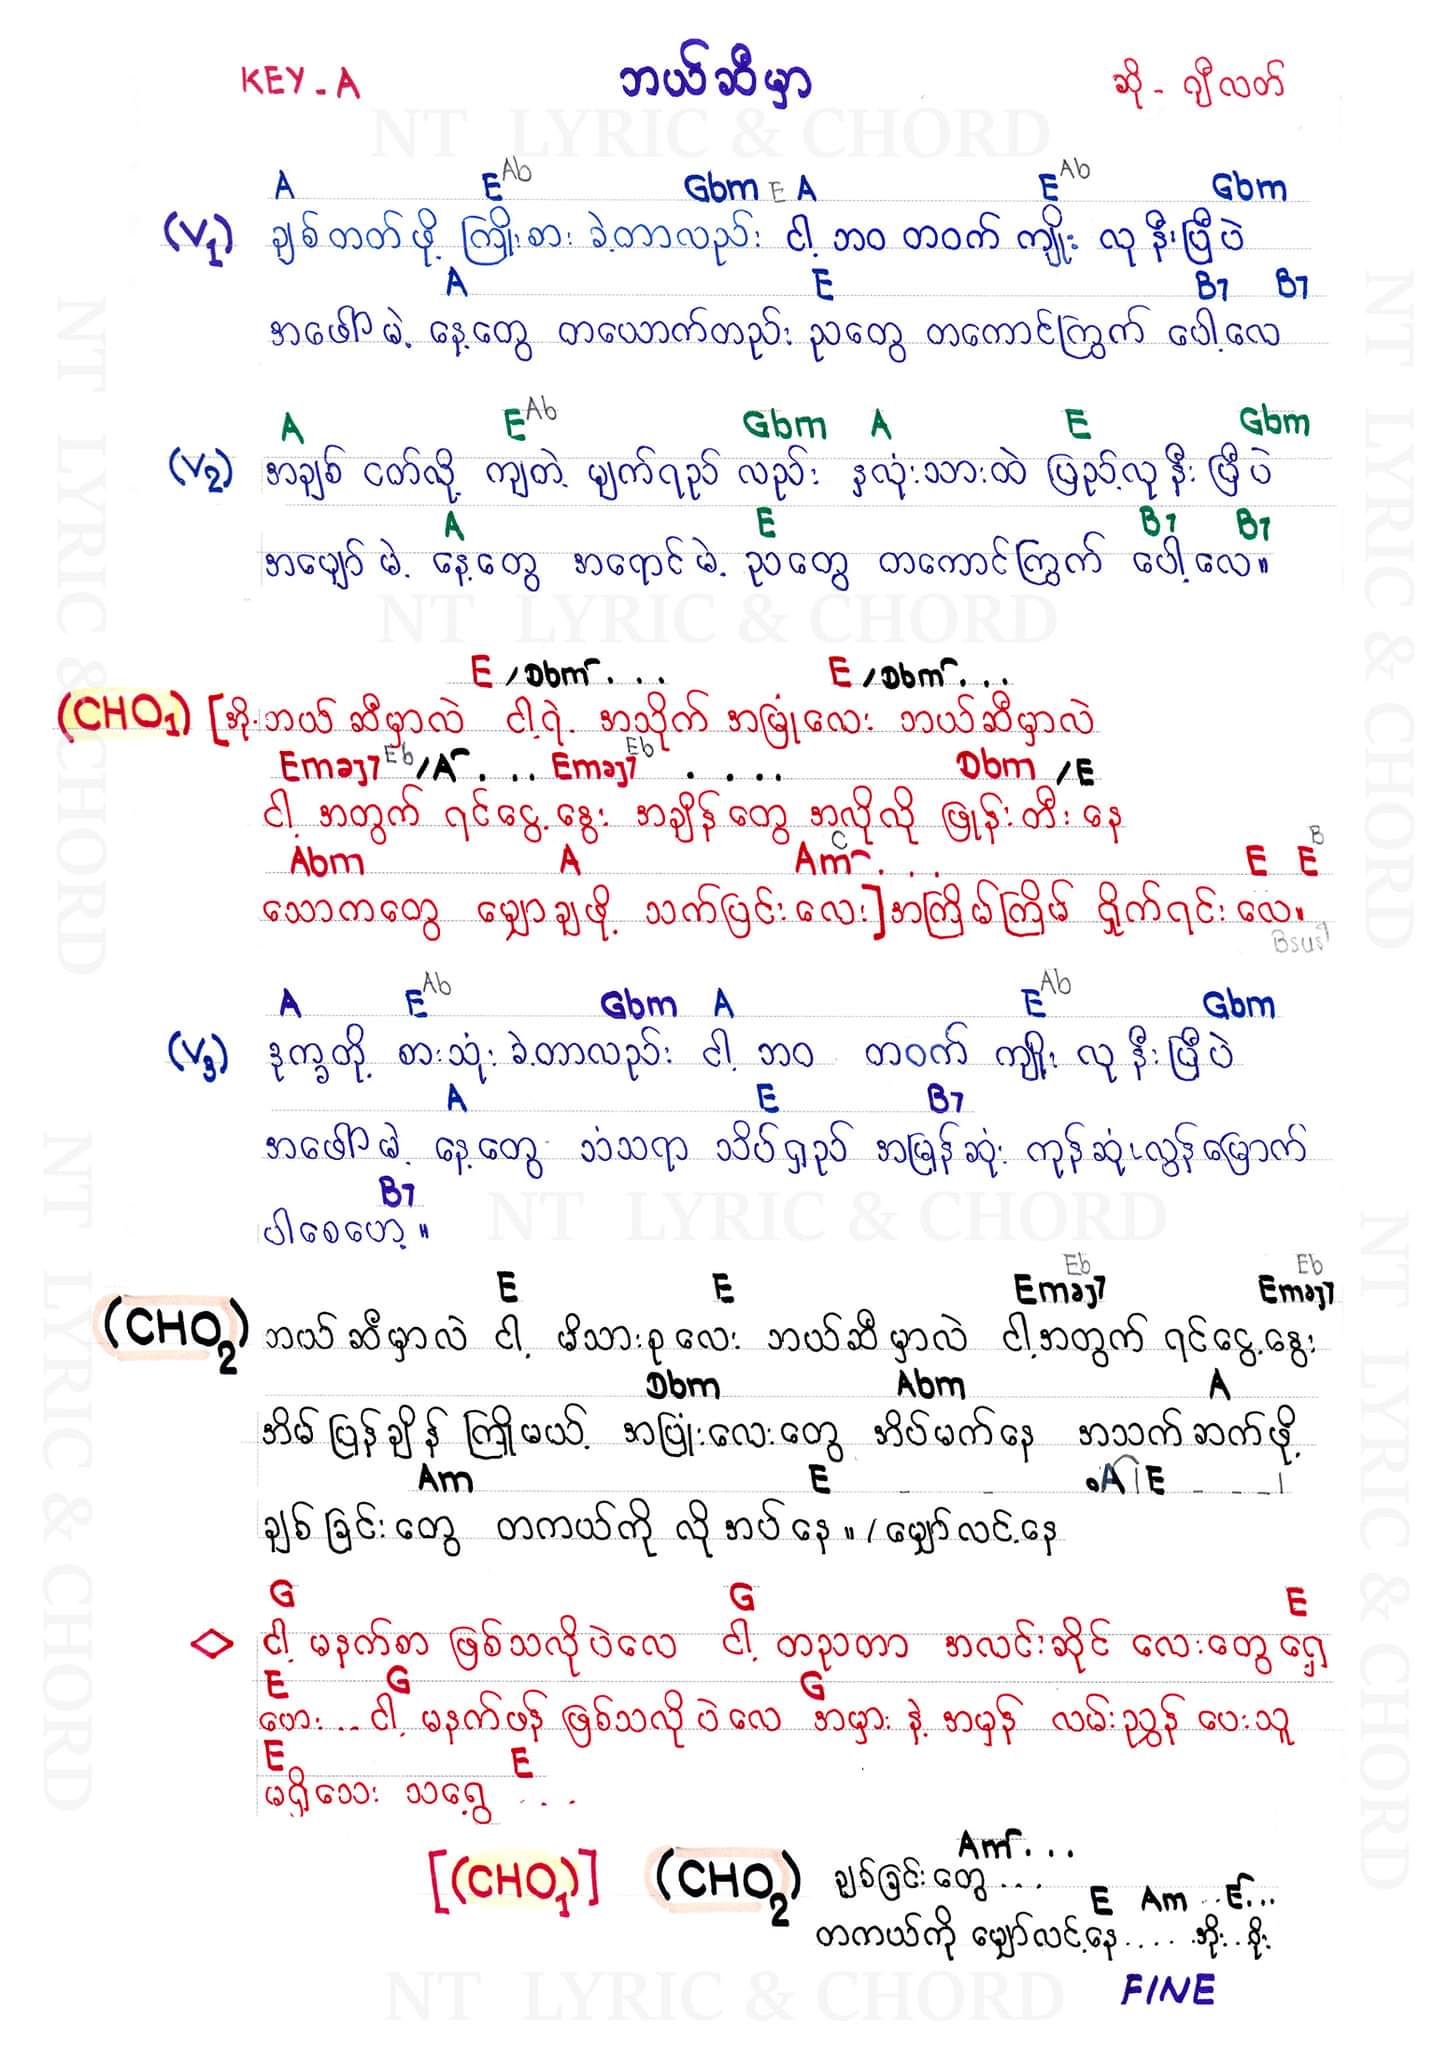 KEY - A ဘယ်ဆီမှာ ဆို - ဂျီလတ်
NT LYRIC & CHORD
A E Ab Gbm E A E Ab Gbm
(V1) ချစ်တတ်ဖို့ ကြိုးစားခဲ့တာလည်း ငါ့ဘဝ တဝက်ကျိုးလုနီးပြီပဲ
A E B7 B7
အဖေါ်မဲ့ နေ့တွေ တယောက်တည်း ညတွေ တကောင်ကြွက် ပေါ့လေ
A E Ab Gbm A E Gbm
(V2) အချစ် ငတ်လို့ ကျတဲ့ မျက်ရည် လည်း နှလုံးသားထဲ ပြည့်လုနီးပြီပဲ
A E B7 B7
အပျော်မဲ့ နေ့တွေ အရောင်မဲ့ ညတွေ တကောင်ကြွက် ပေါ့လေ။
NT LYRIC & CHORD
E /Dbm . . . E /Dbm . . .
(CHO1) [အို.ဘယ်ဆီမှာလဲ ငါ့ရဲ့ အသိုက်အမြုံလေး ဘယ်ဆီမှာလဲ
Emaj7 Eb /A . . . Emaj7 Eb . . . . Dbm /E
ငါ့အတွက် ရင်ငွေ့နွေး အချိန်တွေ အလိုလို ဖြုန်းတီးနေ
Abm A Am C . . . E E B
သောကတွေ မျှောချဖို့ သက်ပြင်းလေး]အကြိမ်ကြိမ် ရှိုက်ရင်းလေ။
Bsus7
A E Ab Gbm A E Ab Gbm
(V3) ဒုက္ခတို့ စားသုံးခဲ့တာလည်း ငါ့ဘဝ တဝက်ကျိုးလုနီးပြီပဲ
A E B7
အဖေါ်မဲ့ နေ့တွေ သံသရာ သိပ်ရှည် အမြန်ဆုံး ကုန်ဆုံးလွန်မြောက်
B7
ပါစေဟေ့။
NT LYRIC & CHORD
E E Emaj7 Eb Emaj7 Eb
(CHO2) ဘယ်ဆီမှာလဲ ငါ့ မိသားစုလေး ဘယ်ဆီမှာလဲ ငါ့အတွက် ရင်ငွေ့နွေး
Dbm Abm A
အိမ်ပြန်ချိန် ကြိုမယ့် အပြုံးလေးတွေ အိပ်မက်နေ အသက်ဆက်ဖို့
Am E A E
ချစ်ခြင်းတွေ တကယ်ကို လိုအပ်နေ။ / မျှော်လင့်နေ
G G E
ငါ့ မနက်စာ ဖြစ်သလိုပဲလေ ငါ့ တညတာ အလင်းဆိုင် လေးတွေရှေ့
E G G
ဟေး... ငါ့ မနက်ဖန် ဖြစ်သလိုပဲလေ အမှားနဲ့ အမှန် လမ်းညွှန်ပေးသူ
E E
မရှိသေး သရွေ့ . . .
Am . . .
[(CHO1)] (CHO2) ချစ်ခြင်းတွေ . . .
E Am .. E...
တကယ်ကို မျှော်လင့်နေ.....
NT LYRIC & CHORD
FINE
NT LYRIC & CHORD
NT LYRIC & CHORD
NT LYRIC & CHORD
NT LYRIC & CHORD